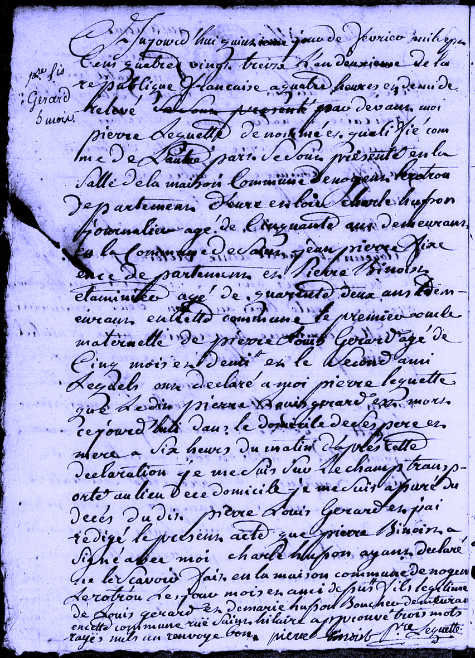 Aujourd'hui quinzieme jour de fevrier mil sept
Cens quatres vingt treize L'an deuxieme de la
republique francaise a quatre heures en demi de
relevé Se Sons presenté par devans moi
pierre Lequette denommé en qualifié com
me de L'autre pars Se Sons presenté en la
Salle de la maison Commune de nogens Lerotrou
departemens d'eure en loir charle husson
journalier agé de Cinquante ans demeurans
en la Commune de Jean pierre fixe
departemens en Pierre Binois
etaminier agé de quarente deux ans dem
eurans en Cette Commune le premier oncle
maternelle de pierre Louis Gerard agé de
Cinq mois en demi en le Second ami
Lesquels ons declaré a moi pierre lequette
que Ledit pierre Louis gerard en mors
cejourd'hui dans le domicile de ses pere en
mere a Six heurs du matin d'après cette
declaration je me suis Sur Le champ trans-
porté au lieu de ce domicile je me suis assuré du
decés du dit pierre Louis Gerard en j'ai
redigé le presens acte que pierre Binois a
Signé avec moi charle husson ayans declaré
ne le scavoir fais en la maison commune de nogens
Lerotrou Les jour mois en an ci dessus fils legitime
de Louis gerard en de marie husson Boucher demeurans
en cette commune rue Sains hilaire approuvé trois mots
rayés nuls un renvoye bon. pierre Binois Pre Lequette
pre Ls
Gerard
5 mois.